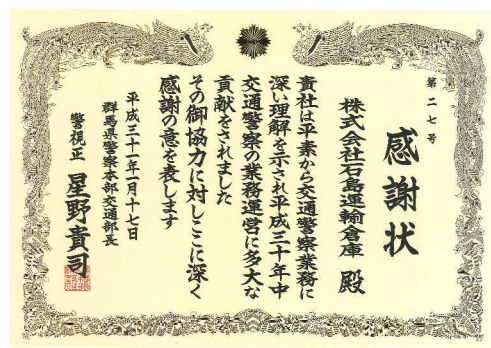 第二七号
感謝状
株式会社石島運輸倉庫 殿
貴社は平素から交通警察業務に
深い理解を示され平成三十年中
交通警察の業務運営に多大な
貢献をされました
その御協力に対しここに深く
感謝の意を表します
平成三十一年一月十七日
群馬県警察本部交通部長
警視正 星野貴司